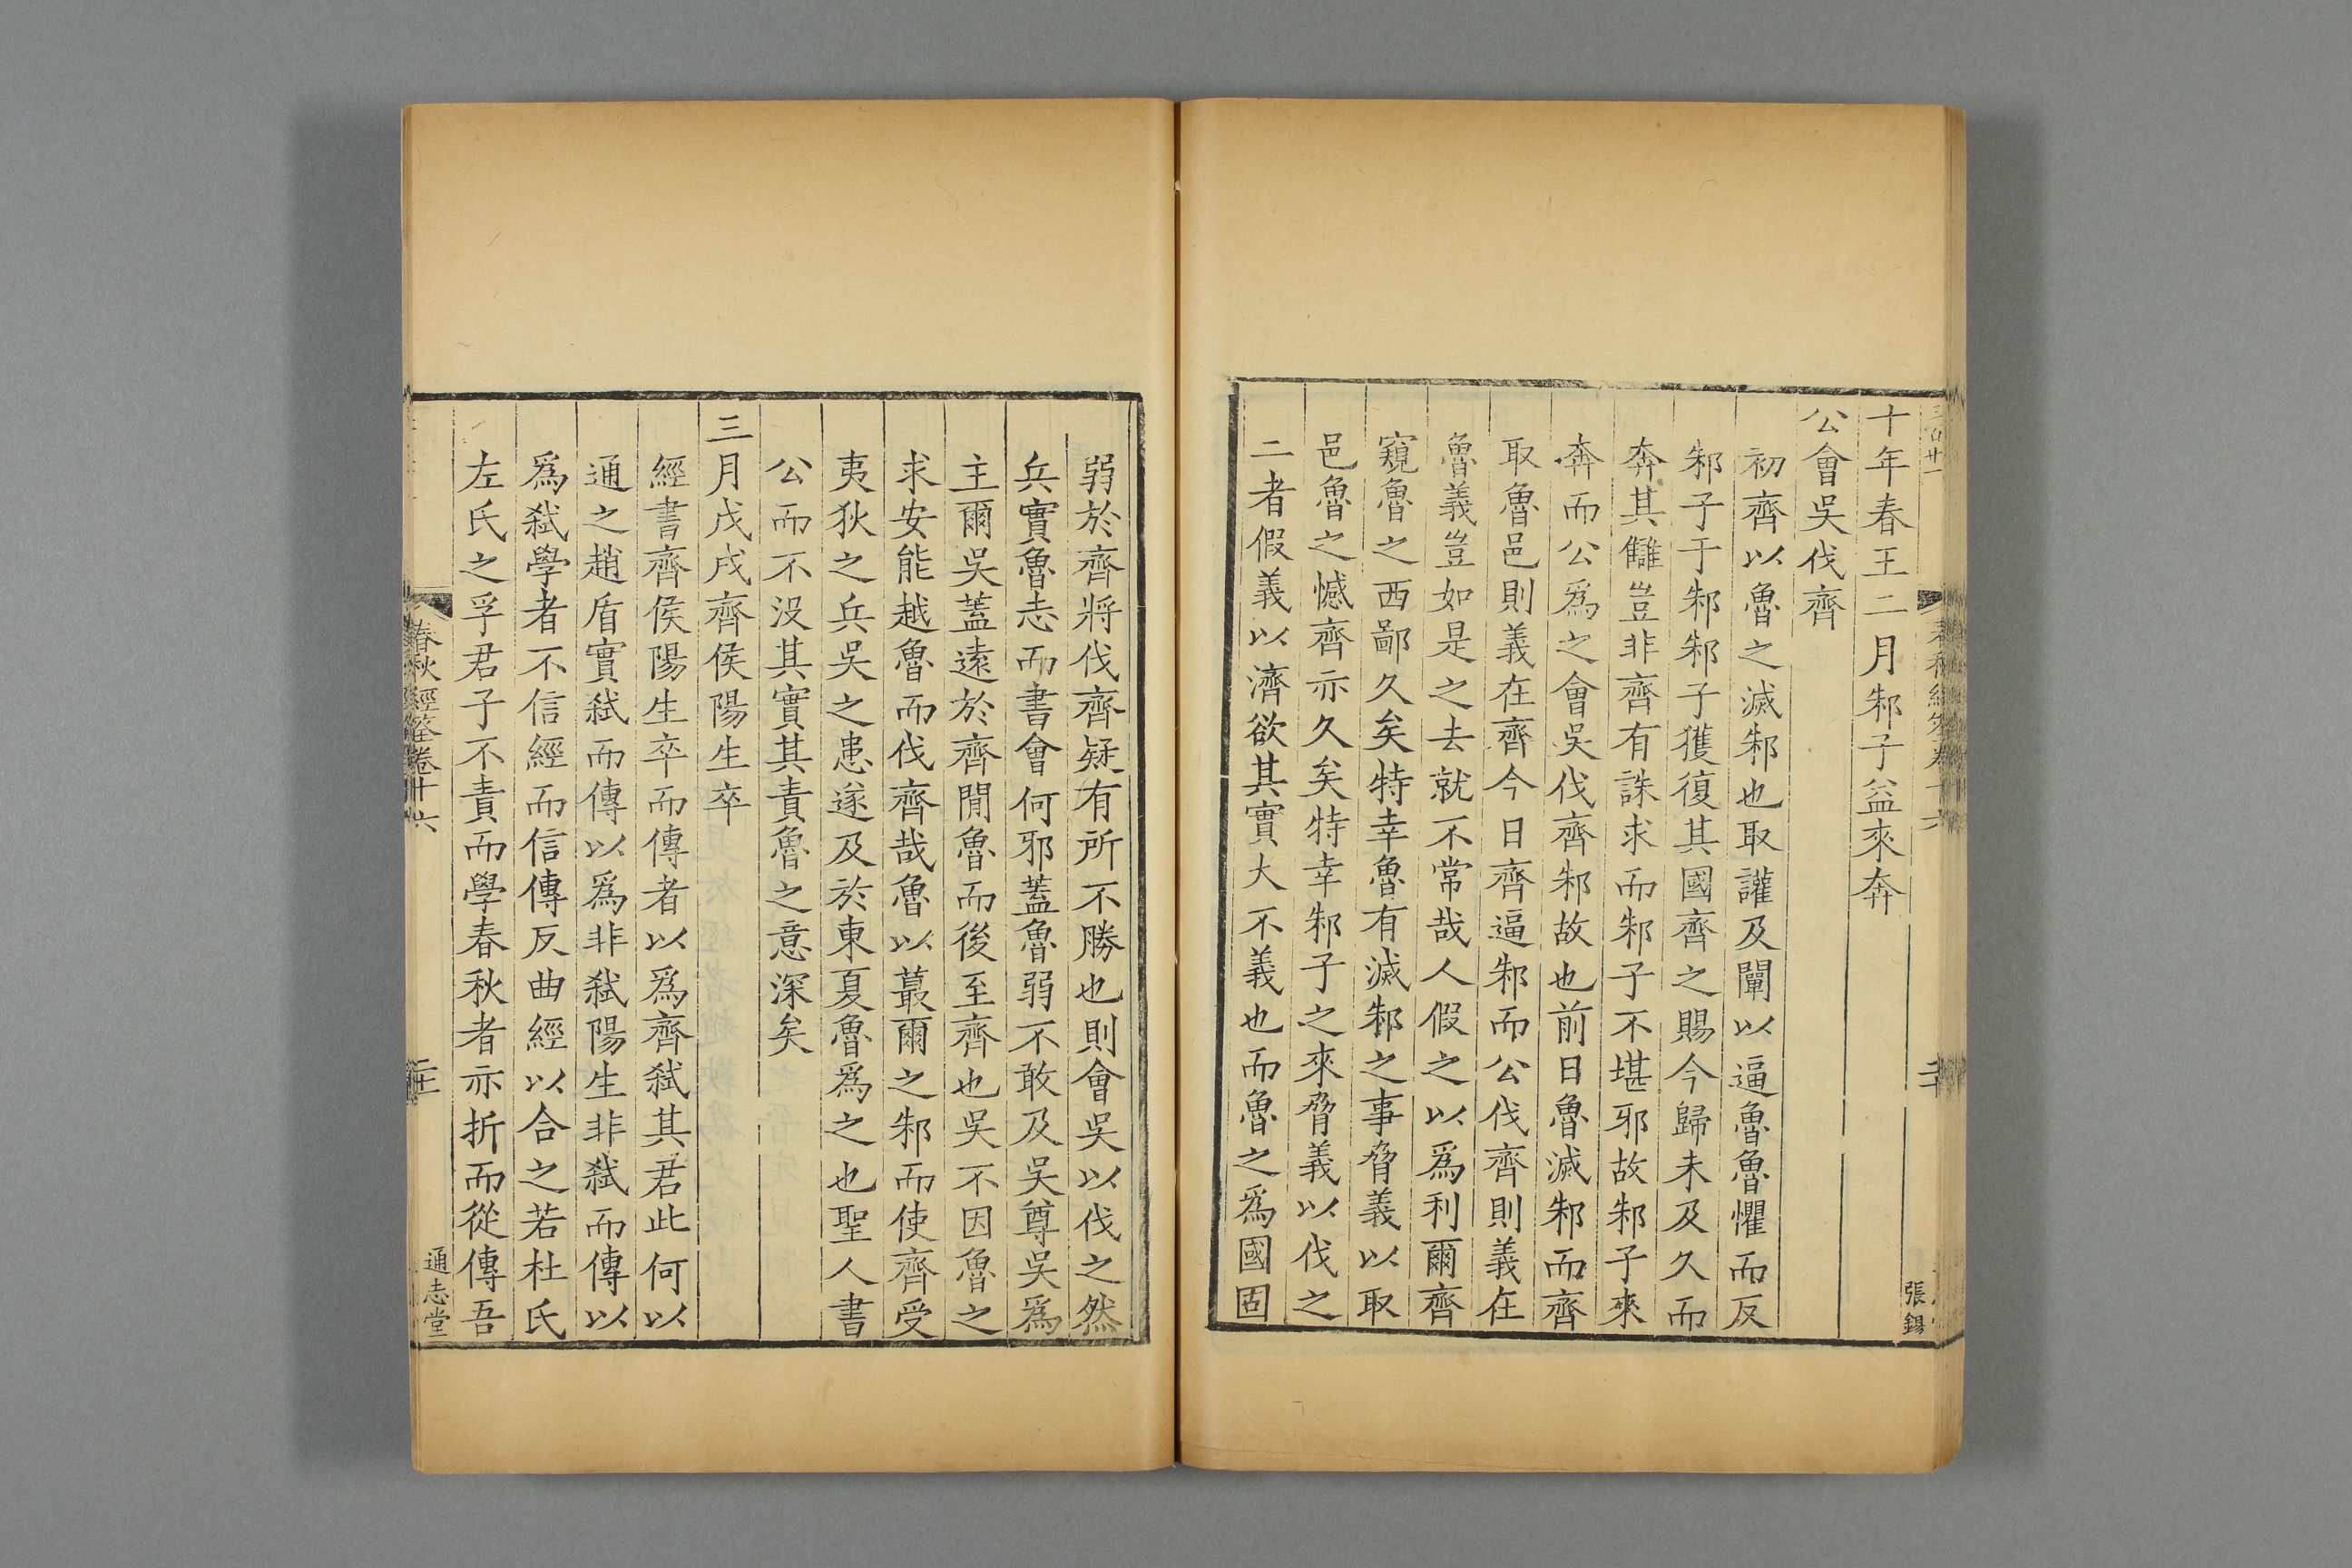 十年春王二月邾子益來奔
公會吳伐齊
初齊以魯之滅邾也取讙及闡以逼魯魯懼而反
邾子于邾邾子獲復其國齊之賜今歸未及久而
奔其讎豈非齊有誅求而邾子不堪邪故邾子來
奔而公爲之會吳伐齊邾故也前日魯滅邾而齊
取魯邑則義在齊今日齊逼邾而公伐齊則義在
魯義豈如是之去就不常哉人假之以爲利爾齊
窺魯之西鄙久矣特幸魯有滅邾之事脅義以取
邑魯之憾齊亦久矣特幸邾子之來脅義以伐之
二者假義以濟欲其實大不義也而魯之爲國固
張錫
弱於齊將伐齊疑有所不勝也則會吳以伐之然
兵實魯志而書會何邪蓋魯弱不敢及吳尊吳爲
主爾吳蓋遠於齊閒魯而後至齊也吳不因魯之
求安能越魯而伐齊哉魯以蕞爾之邾而使齊受
夷狄之兵吳之患遂及於東夏魯爲之也聖人書
公而不沒其實其責魯之意深矣
三月戊戌齊侯陽生卒
經書齊侯陽生卒而傳者以爲齊弒其君此何以
通之趙盾實弒而傳以爲非弒陽生非弒而傳以
爲弒學者不信經而信傳反曲經以合之若杜氏
左氏之孚君子不責而學春秋者亦折而從傳吾
春秋經筌卷十六
通志堂